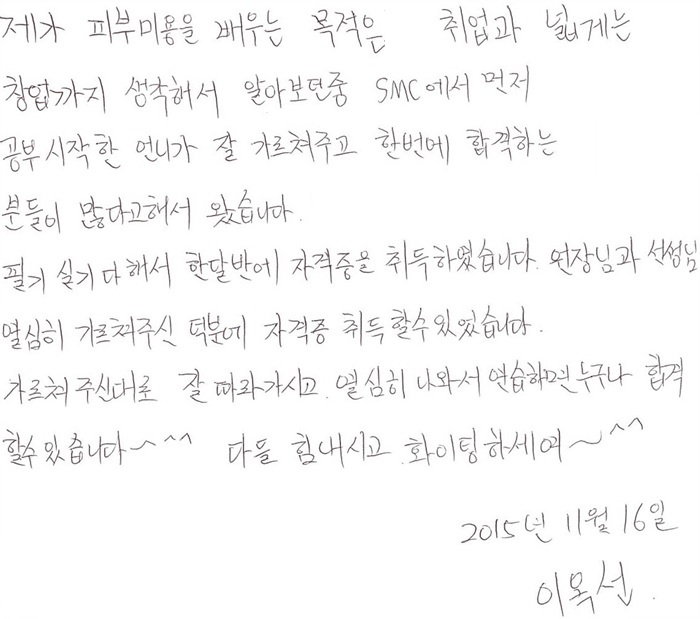 제가 피부미용을 배우는 목적은 취업과 넓게는
창업까지 생각해서 알아보던중 SMC에서 먼저
공부시작한 언니가 잘 가르쳐주고 한번에 합격하는
분들이 많다고해서 왔습니다.
필기 실기 다해서 한달반에 자격증을 취득하였습니다. 원장님과 선생님
열심히 가르쳐주신 덕분에 자격증 취득할수있었습니다.
가르쳐주신대로 잘 따라가시고 열심히 나와서 연습하면 누구나 합격
할수있습니다~^^ 다들 힘내시고 화이팅하세여~^^
2015년 11월 16일
이옥선.